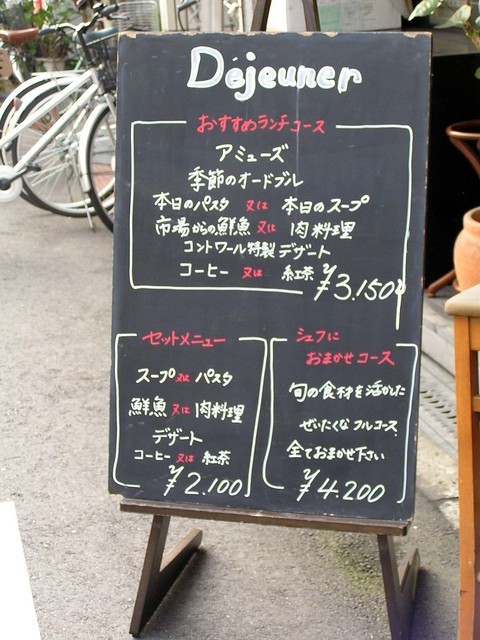 Dejeuner
おすすめランチコース
アミューズ
季節のオードブル
本日のパスタ 又は 本日のスープ
市場からの鮮魚 又は 肉料理
コントワール特製デザート
コーヒー 又は 紅茶
¥3.150
セットメニュー
スープ 又は パスタ
鮮魚 又は 肉料理
デザート
コーヒー 又は 紅茶
¥2.100
シェフに
おまかせコース
旬の食材を活かした
ぜいたくなフルコース
全ておまかせ下さい
¥4.200